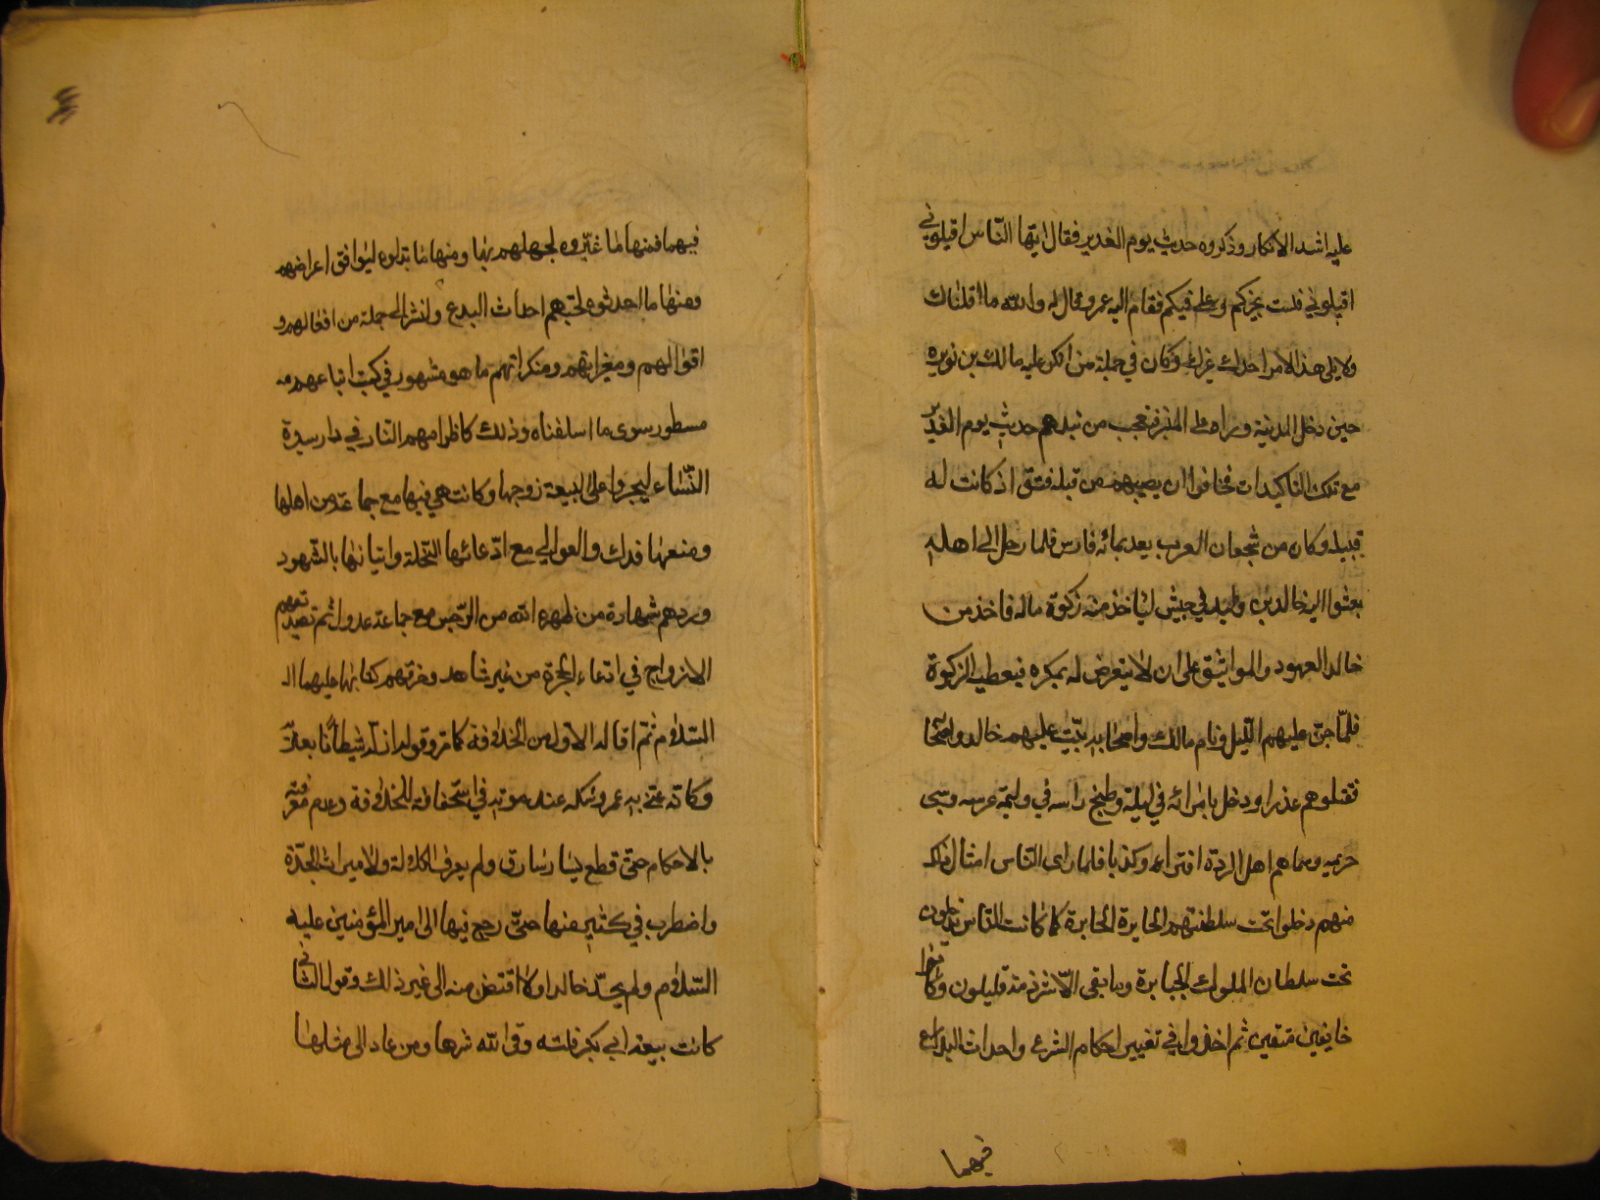 عليه اشد الانكار وذكروه حديث يوم الغدير فقال ايها الناس اقيلوني
اقيلوني فلست بخيركم وعلي فيكم فقام اليه عمر وقال له والله ما اقلناك
ولا يلي هذا الامر احد غيرك وكان في جملة من انكر عليه مالك بن نويره
حين دخل المدينة وراه على المنبر فتعجب من نبذهم حديث يوم الغدير
مع تلك التاكيدات فخافوا ان يصيبهم من قبله فتق اذ كانت له
قبيله وكان من شجعان العرب يعد بمائه فارس فلما رحل الى اهله
بعثوا اليه خالد بن وليد في جيش لياخذ منه زكوة ماله فاخذ من
خالد العهود والمواثيق على ان لا يتعرض له بمكره فيعطيه الزكوة
فلما جن عليهم الليل ونام مالك واصحابه بيت عليهم خالد واصحا
فقتلوهم غدرا ودخل بامراته في ليلة وطبخ راسه في وليمة عرسه وسبى
حريمه وسماهم اهل الردة افتراء وكذبا فلما راى الناس امثال ذلك
منهم دخلوا تحت سلطنتهم الجايرة الجابرة كما كانت الناس يدخلون
تحت سلطان الملوك الجبابرة وما بقى الا شرذمة قليلون وكانوا
خايفين متقين ثم اخذوا في تغيير احكام الشرع واحداث البدايع
فيهما
فيهما فمنها ما غيروه لجهلهم بها ومنها ما بدلوه ليوافق اغراضهم
ومنها ما احدثوه لحبهم احداث البدع ولنشر الى جملة من افعالهم و
اقوالهم ومغيراتهم ومنكراتهم ما هو مشهور في كتب اتباعهم
مسطور سوى ما اسلفناه وذلك كاظرامهم النار في دار سيدة
النساء ليجروا على البيعة زوجها وكانت هي فيها مع جماعة من اهلها
ومنعها فدك والعوالي مع ادعائها النحلة واتيانها بالشهود
وردهم شهادة من طهره الله من الرجس مع جماعة عدول ثم تصديقهم
الازواج في ادعاء الحجرة من غير شاهد وخرقهم كتابها عليها ال
السلام ثم اقاله الاول من الخلافة كما مر وقوله ان له شيطانا يعتريه
وكانه عنى به عمر وشكه عند موته في استحقاقه للخلافة وعدم معرفته
بالاحكام حتى قطع يسار سارق ولم يعرف الكلالة ولا ميراث الجدة
واضطرب في كثير منها حتى رجع فيها الى امير المؤمنين عليه
السلام ولم يحد خالدا ولا اقتص منه الى غير ذلك وقول الثاني
كانت بيعة ابي بكر فلته وقى الله شرها ومن عاد الى مثلها